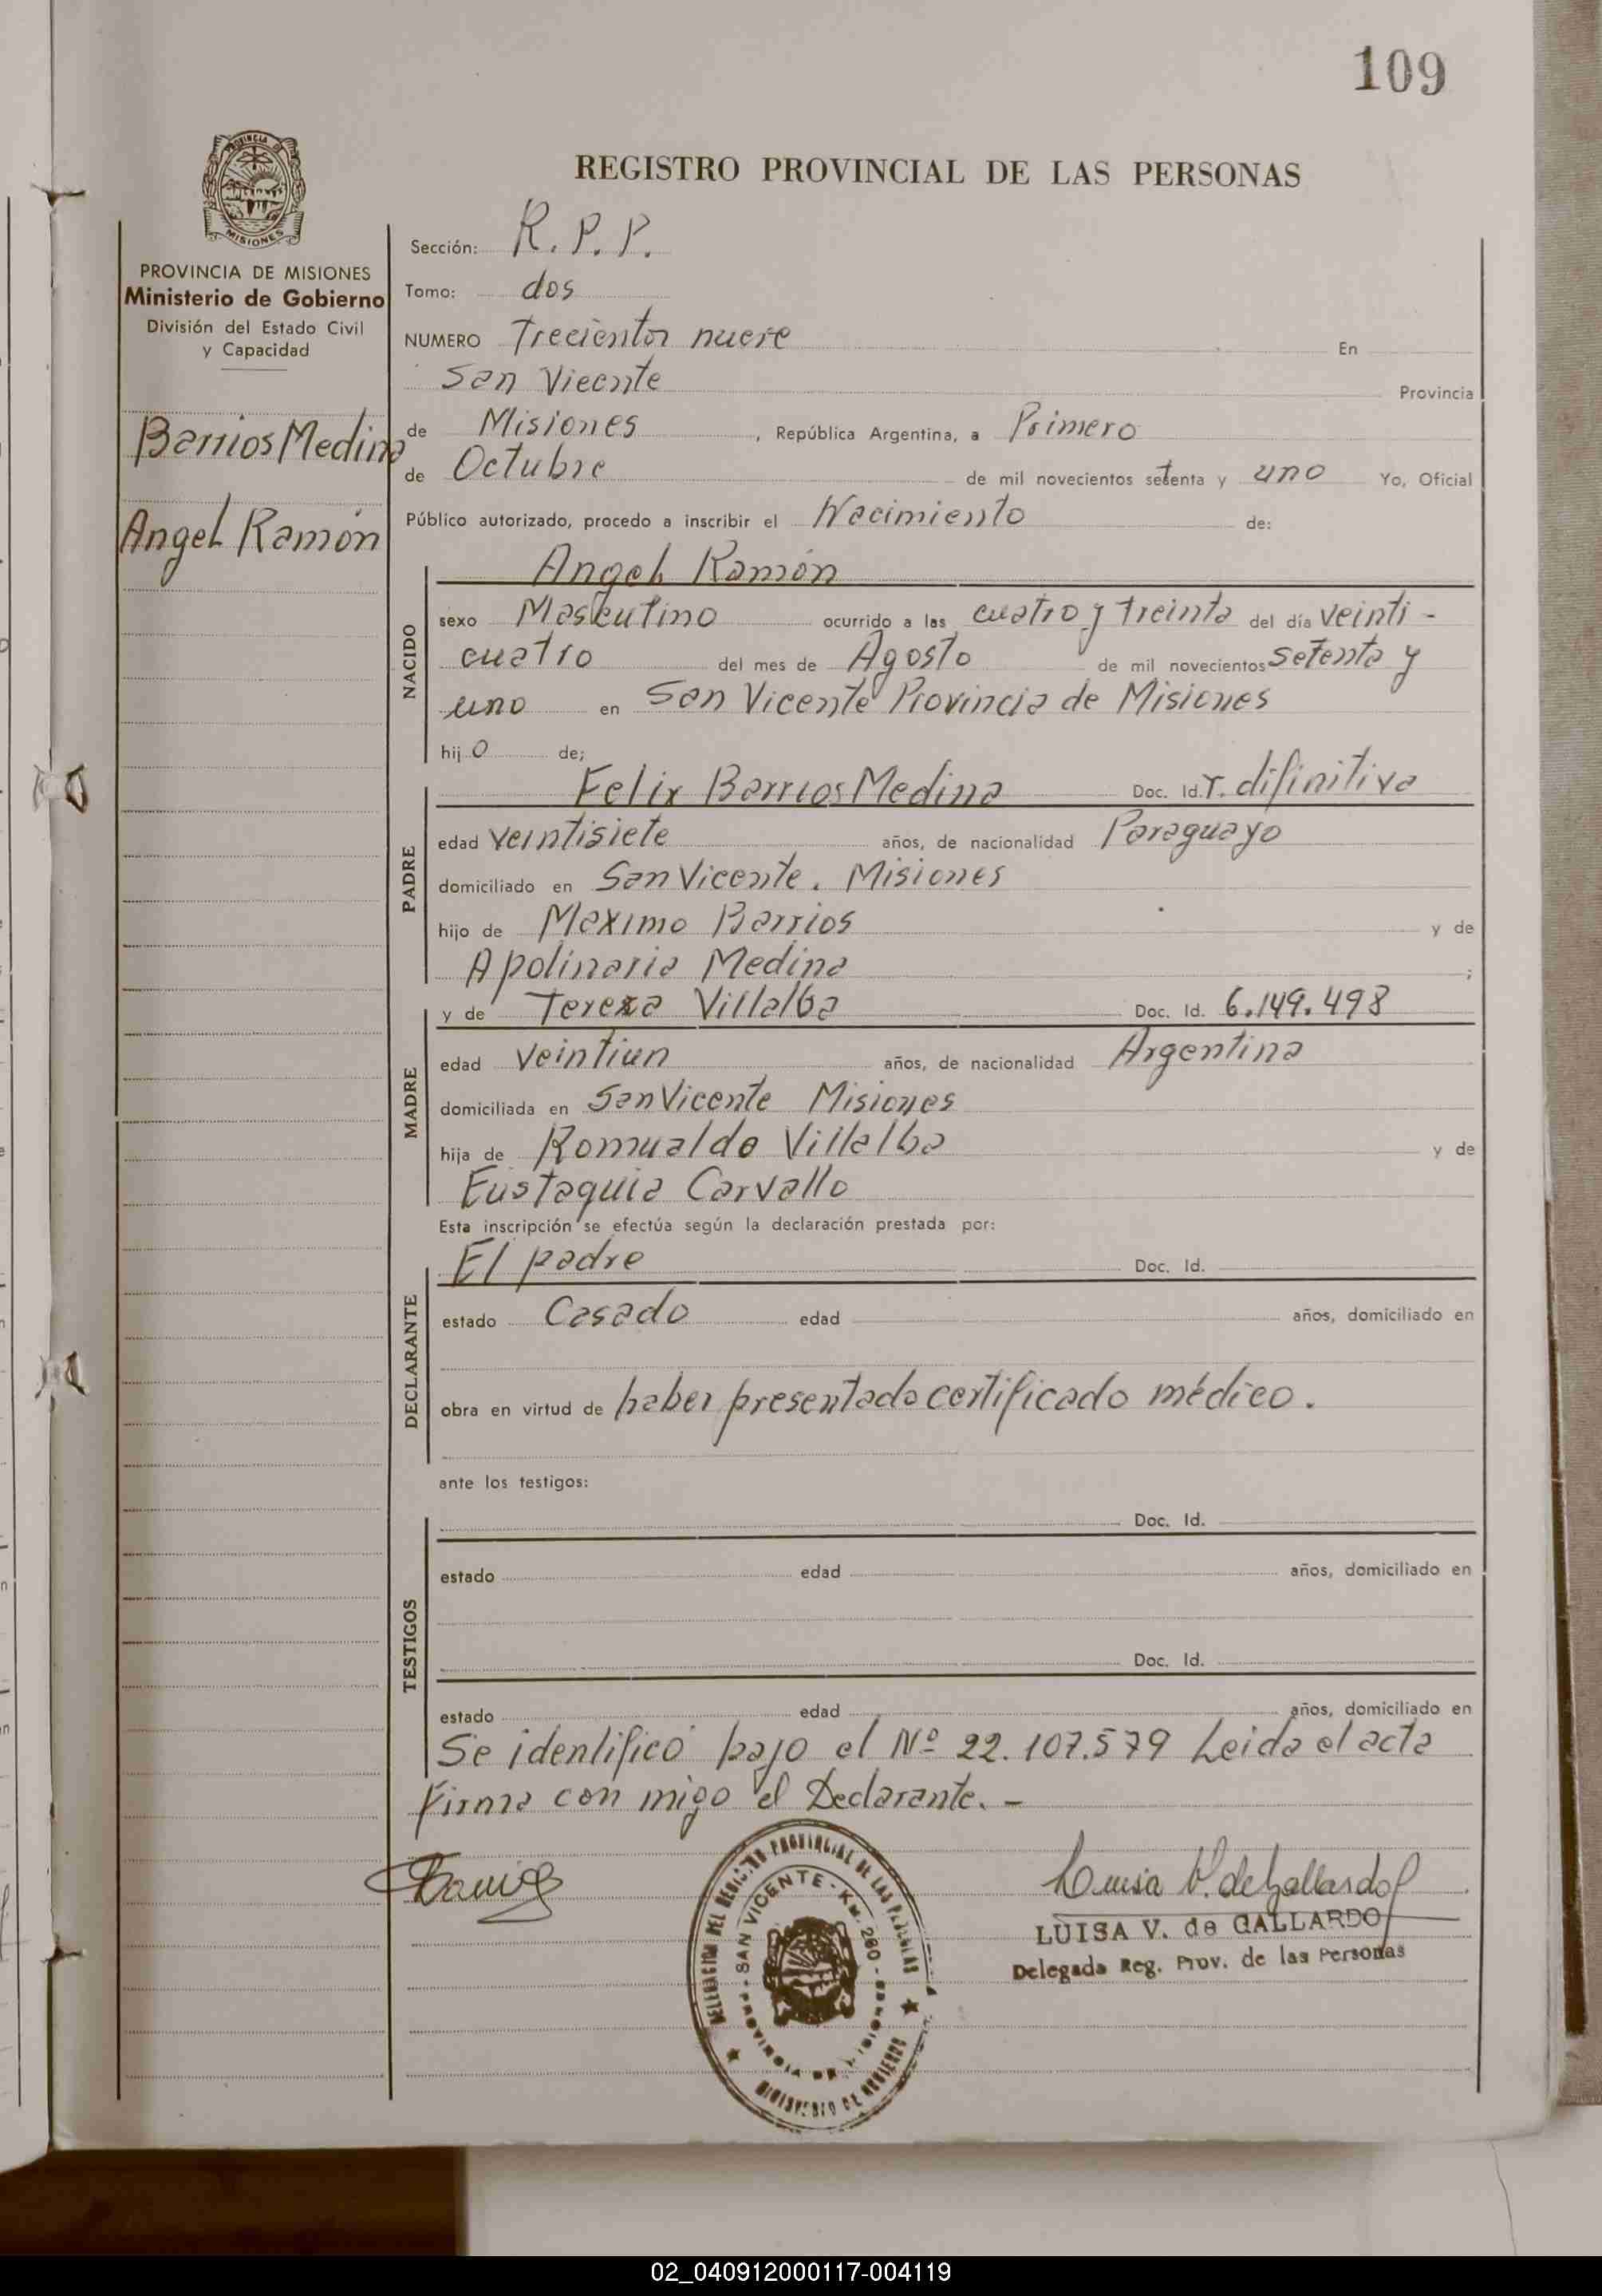 109
PROVINCIA DE
MISIONES
REGISTRO PROVINCIAL DE LAS PERSONAS
PROVINCIA DE MISIONES
Ministerio de Gobierno
División del Estado Civil
y Capacidad
Barrios Medina
Angel Ramón
Sección: R. P. P.
Tomo: dos
NUMERO Trecientos nueve En
San Vicente Provincia
de Misiones, República Argentina, a Primero
de Octubre de mil novecientos setenta y uno Yo, Oficial
Público autorizado, procedo a inscribir el Nacimiento de:
NACIDO
Angel Ramón
sexo Masculino ocurrido a las cuatro y treinta del día veinti-
cuatro del mes de Agosto de mil novecientos setenta y
uno en San Vicente Provincia de Misiones
hijo de;
PADRE
Felix Barrios Medina Doc. Id. r. difinitiva
edad veintisiete años, de nacionalidad Paraguayo
domiciliado en San Vicente. Misiones
hijo de Maximo Barrios y de
Apolinaria Medina ;
MADRE
y de Tereza Villalba Doc. Id. 6.149.498
edad veintiun años, de nacionalidad Argentina
domiciliada en San Vicente Misiones
hija de Romualdo Villalba y de
Eustaquia Carvallo
Esta inscripción se efectúa según la declaración prestada por:
DECLARANTE
El padre Doc. Id.
estado Casado edad años, domiciliado en
obra en virtud de haber presentado certificado médico.
ante los testigos:
TESTIGOS
Doc. Id.
estado edad años, domiciliado en
Doc. Id.
estado edad años, domiciliado en
Se identificó bajo el Nº 22.107.579 Leida el acta
Firma con migo el Declarante. -
DELEGACION DEL REGISTRO PROVINCIAL DE LAS PERSONAS
SAN VICENTE - KM. 280 -
MINISTERIO DE GOBIERNO
Luisa V. de Gallardo
LUISA V. de GALLARDO
Delegada Reg. Prov. de las Personas
02_040912000117-004119